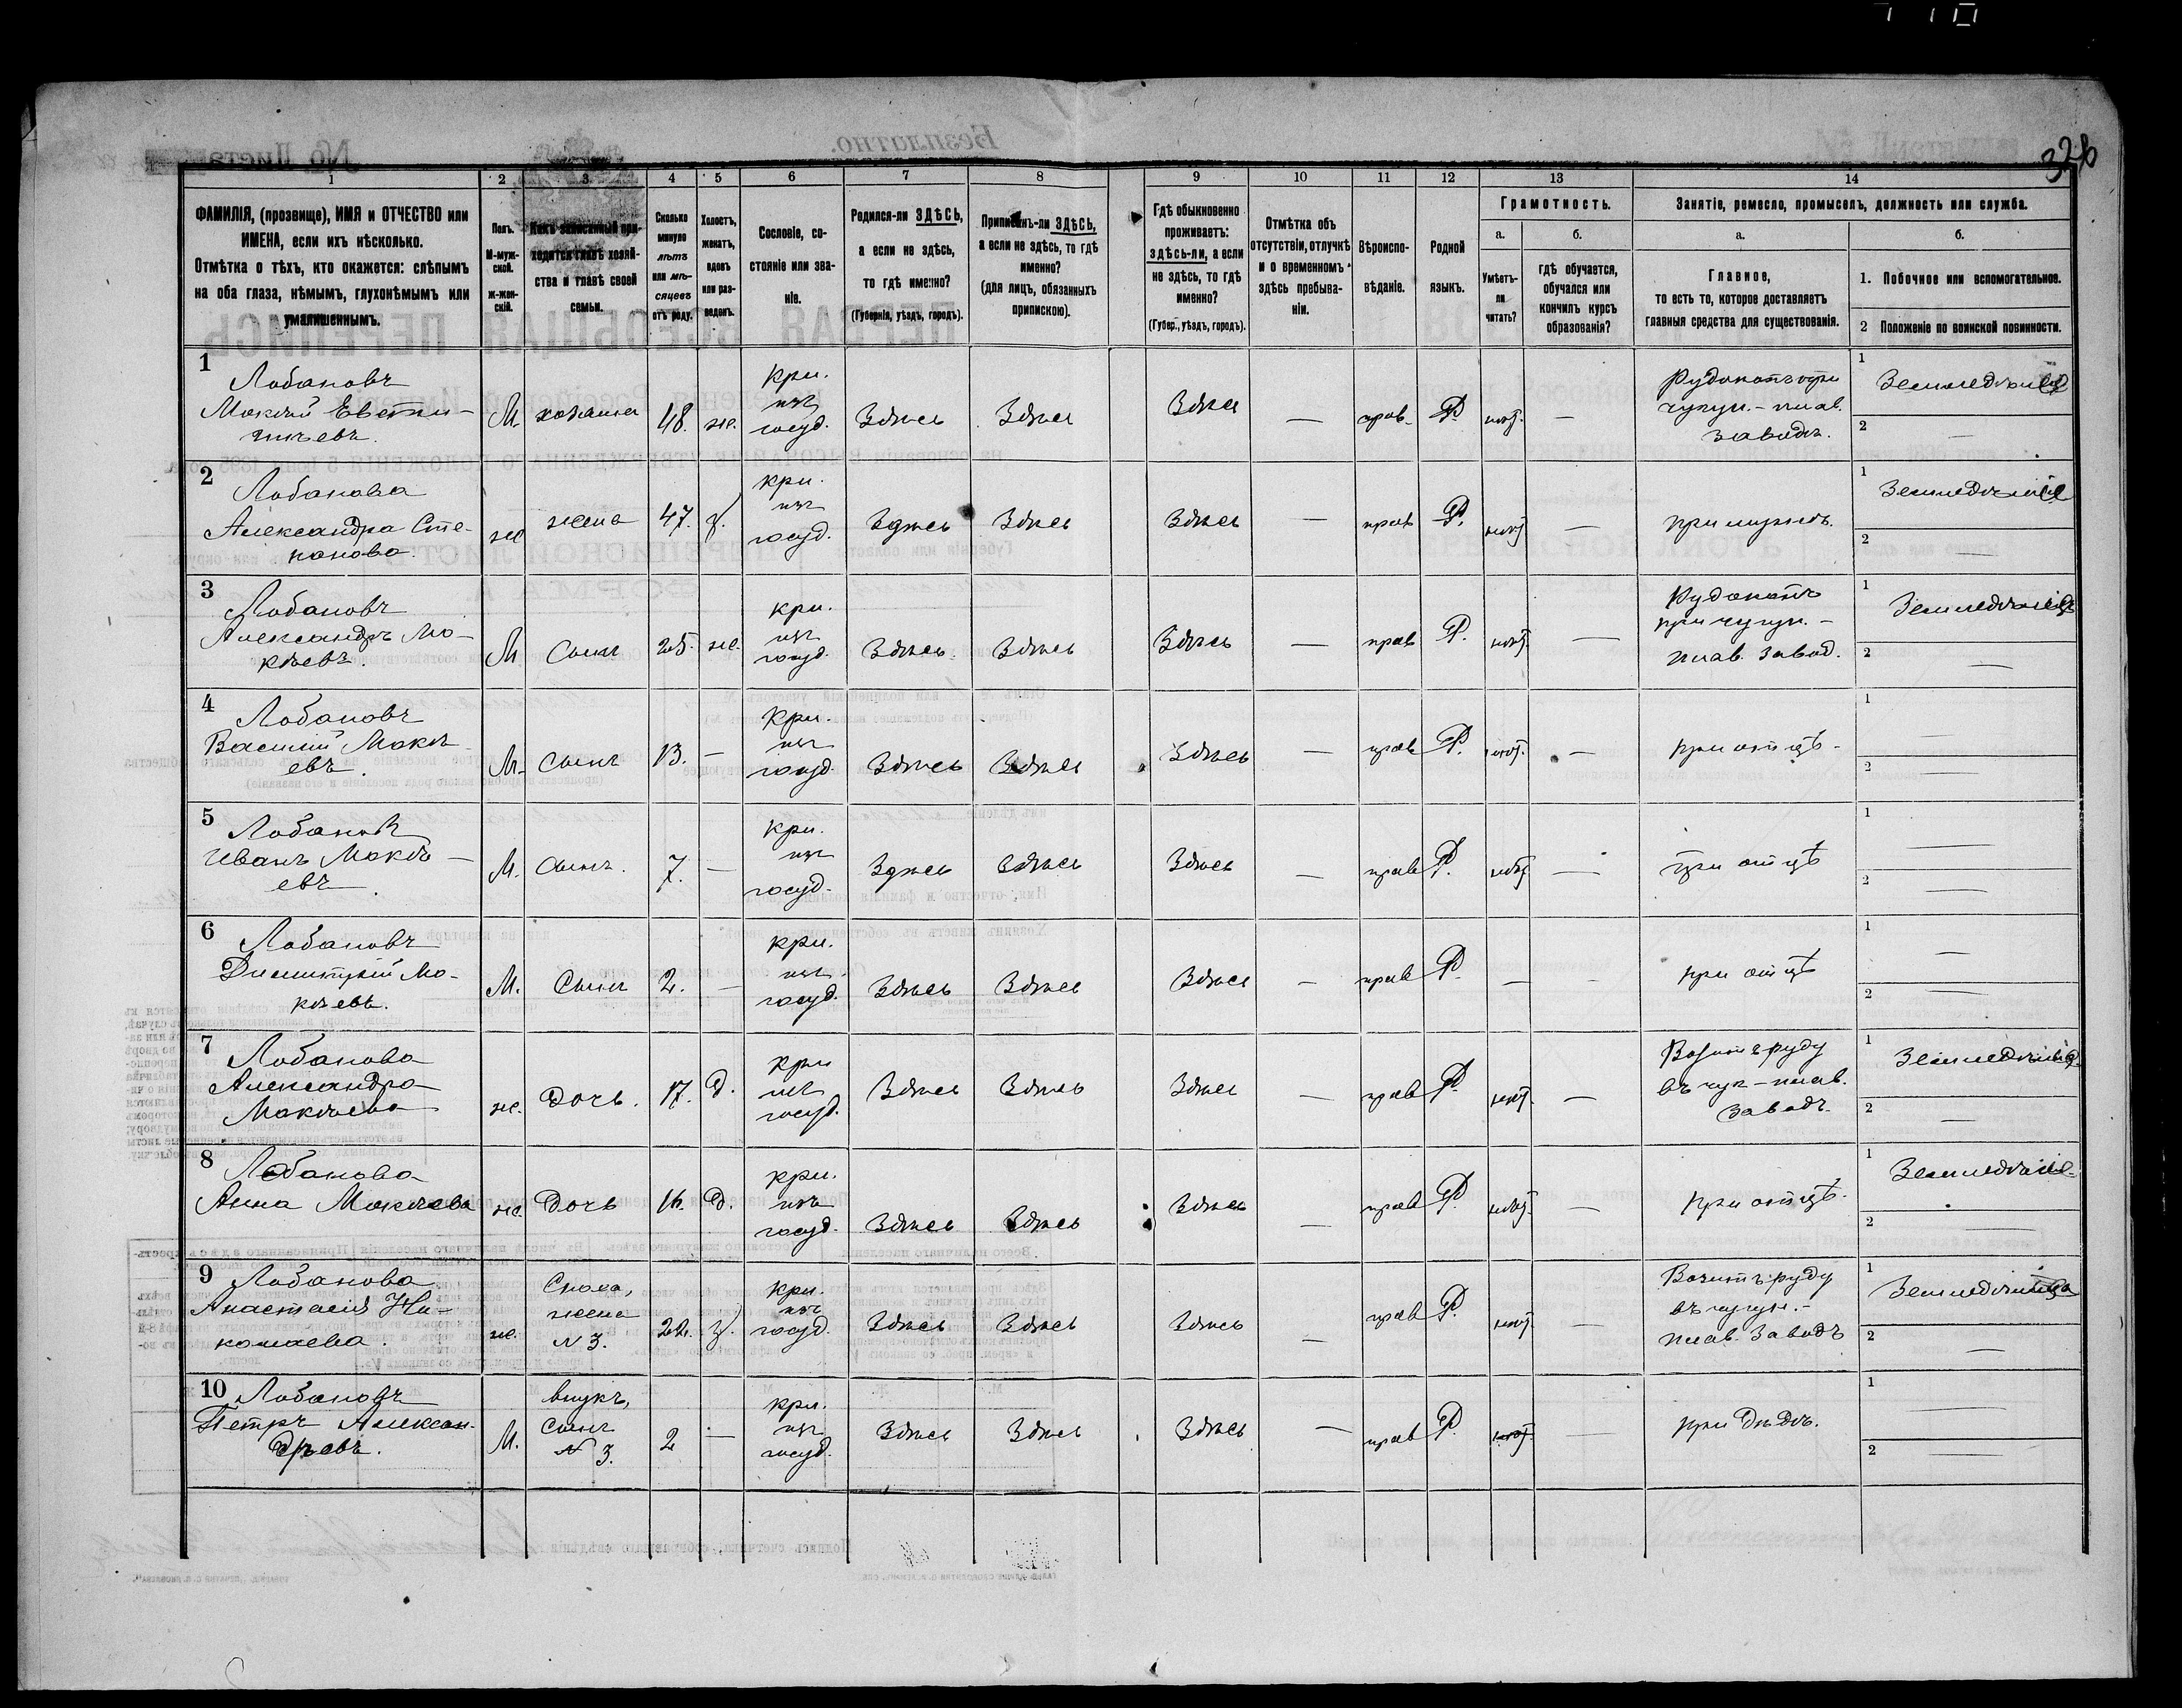 326
1 2 3 4 5 6 7 8 9 10 11 12 13 14
ФАМИЛІЯ, (прозвище), ИМЯ и ОТЧЕСТВО или
ИМЕНА, если ихъ нѣсколько.
Отмѣтка о тѣхъ, кто окажется: слѣпымъ
на оба глаза, нѣмымъ, глухонѣмымъ или
умалишеннымъ.
Полъ.
М-муж-
ской.
ж-жен-
скій.
Какъ записанный при-
ходится главѣ хозяй-
ства и главѣ своей
семьи.
Сколько
минуло
лѣтъ
или мѣ-
сяцевъ
отъ роду.
Холостъ,
женатъ,
вдовъ
или раз-
веденъ.
Сословіе, со-
стояніе или зва-
ніе.
Родился-ли ЗДѢСЬ,
а если не здѣсь,
то гдѣ именно?
(Губернія, уѣздъ, городъ).
Приписанъ-ли ЗДѢСЬ,
а если не здѣсь, то гдѣ
именно?
(для лицъ, обязанныхъ
припискою).
Гдѣ обыкновенно
проживаетъ:
здѣсь-ли, а если
не здѣсь, то гдѣ
именно?
(Губер., уѣздъ, городъ).
Отмѣтка объ
отсутствіи, отлучкѣ
и о временномъ
здѣсь пребыва-
ніи.
Вѣроиспо-
вѣданіе.
Родной
языкъ.
Грамотность.
а.
Умѣетъ-
ли
читать?
б.
гдѣ обучается,
обучался или
кончилъ курсъ
образованія?
Занятіе, ремесло, промыселъ, должность или служба.
а.
Главное,
то есть то, которое доставляетъ
главныя средства для существованія.
б.
1. Побочное или вспомогательное.
2 Положеніе по воинской повинности.
1
Лобановъ
Мокѣй
М. хозяинъ 48. ж. кри. изъ госуд. Здѣсь Здѣсь Здѣсь — прав. Р. нѣт. —
чугун.-плав.
заводъ.
1
2 —
2
Лобанова
Александра Сте-
панова.
ж жена 47. з. кри. изъ госуд. Здѣсь Здѣсь Здѣсь — прав Р. нѣт —
при мужѣ.
1
2 —
3
Лобановъ
Александръ Мо-
кѣевъ.
М Сынъ 25. ж. кри. изъ госуд. Здѣсь Здѣсь Здѣсь — прав Р. нѣт. —
Рудокопъ
при чугун.-
плав. завод.
1
2 —
4
Лобановъ
Василій Мокѣ-
евъ.
М. Сынъ 13. — кри. изъ госуд. Здѣсь Здѣсь Здѣсь — прав Р. нѣт. —
при отцѣ.
1 —
2 —
5
Лобановъ
Иванъ Мокѣ-
евъ.
М. Сынъ. 7. — кри. изъ госуд. Здѣсь Здѣсь Здѣсь — прав Р. нѣт —
при отцѣ
1 —
2 —
6
Лобановъ
Димитрій Мо-
кѣевъ.
М. Сынъ 2. — кри. изъ госуд. Здѣсь Здѣсь Здѣсь — прав Р. — —
при отцѣ
1 —
2 —
7
Лобанова
Александра
Мокѣева
ж. Дочь. 17. Д. кри изъ госуд. Здѣсь Здѣсь Здѣсь — прав Р. нѣт. —
Возитъ руду
въ чуг-плав.
заводъ.
1
2 —
8
Лобанова
Анна Мокѣева
ж. Дочь 16. Д. кри. изъ госуд. Здѣсь Здѣсь Здѣсь — прав Р. нѣт. —
при отцѣ.
1
2 —
9
Лобанова
Анастасія Ни-
колаева.
ж. Сноха, жена № 3. 22. з. кри. изъ госуд. Здѣсь Здѣсь Здѣсь — прав Р. нѣт. —
Возитъ руду
въ чугун.-
плав. заводъ
1
2 —
10
Лобановъ
Петръ Алексан-
дровъ.
М. внукъ, Сынъ № 3. 2 — кри. изъ госуд. Здѣсь Здѣсь Здѣсь — прав Р. —
при дѣдѣ.
1 —
2 —